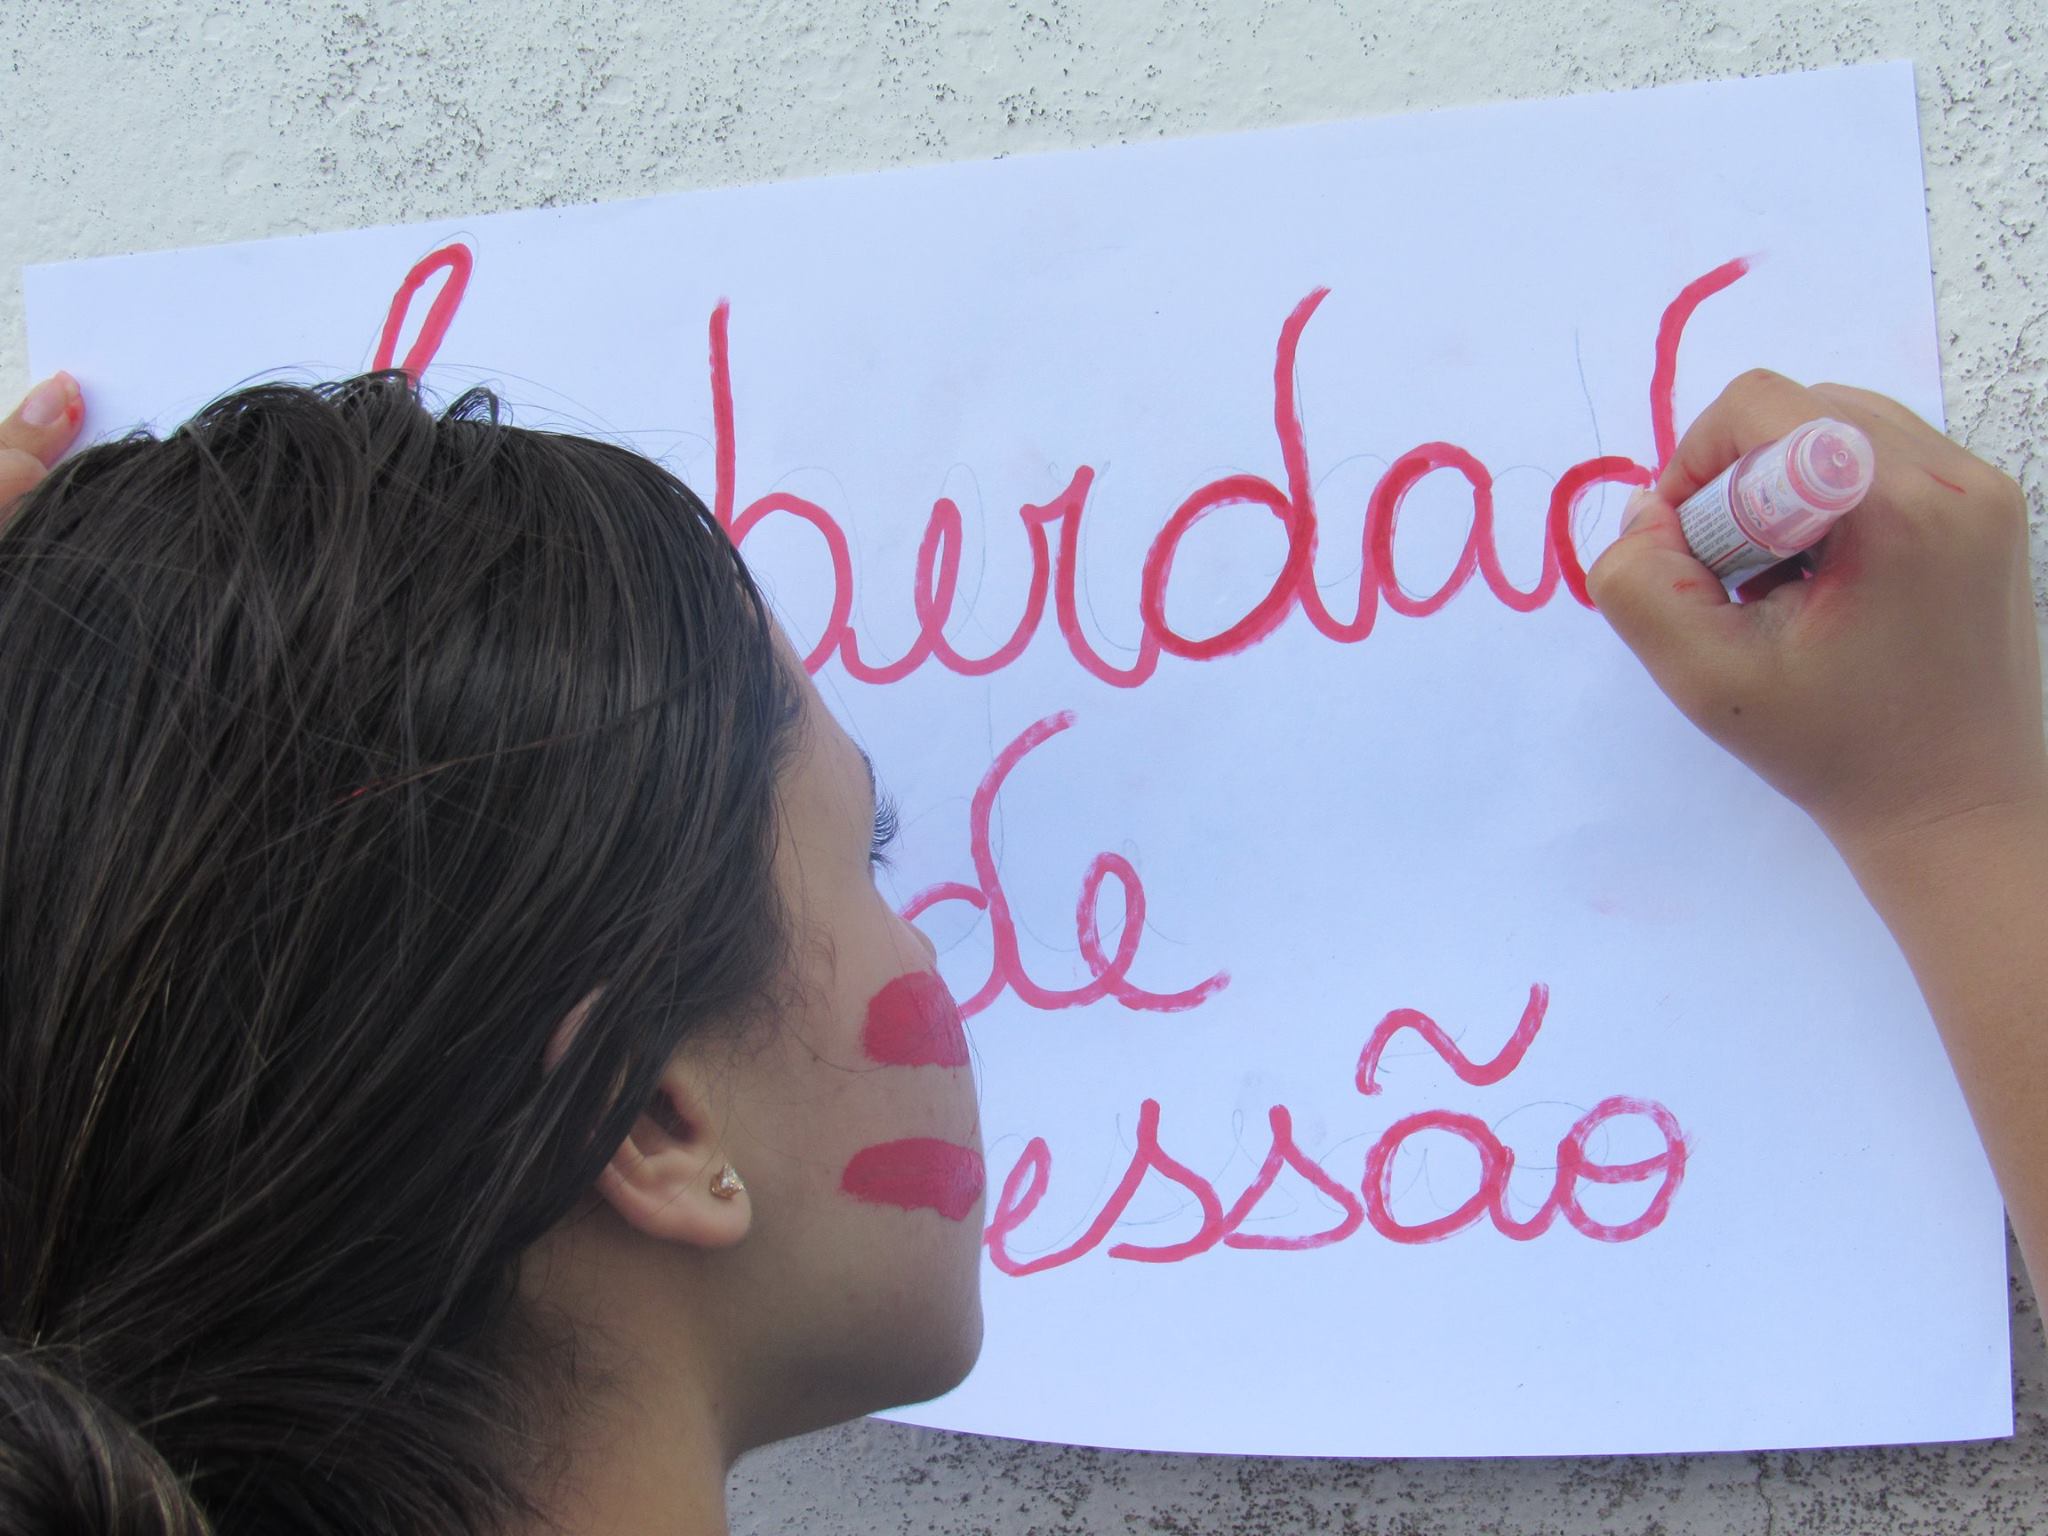 L berdad
de
essão